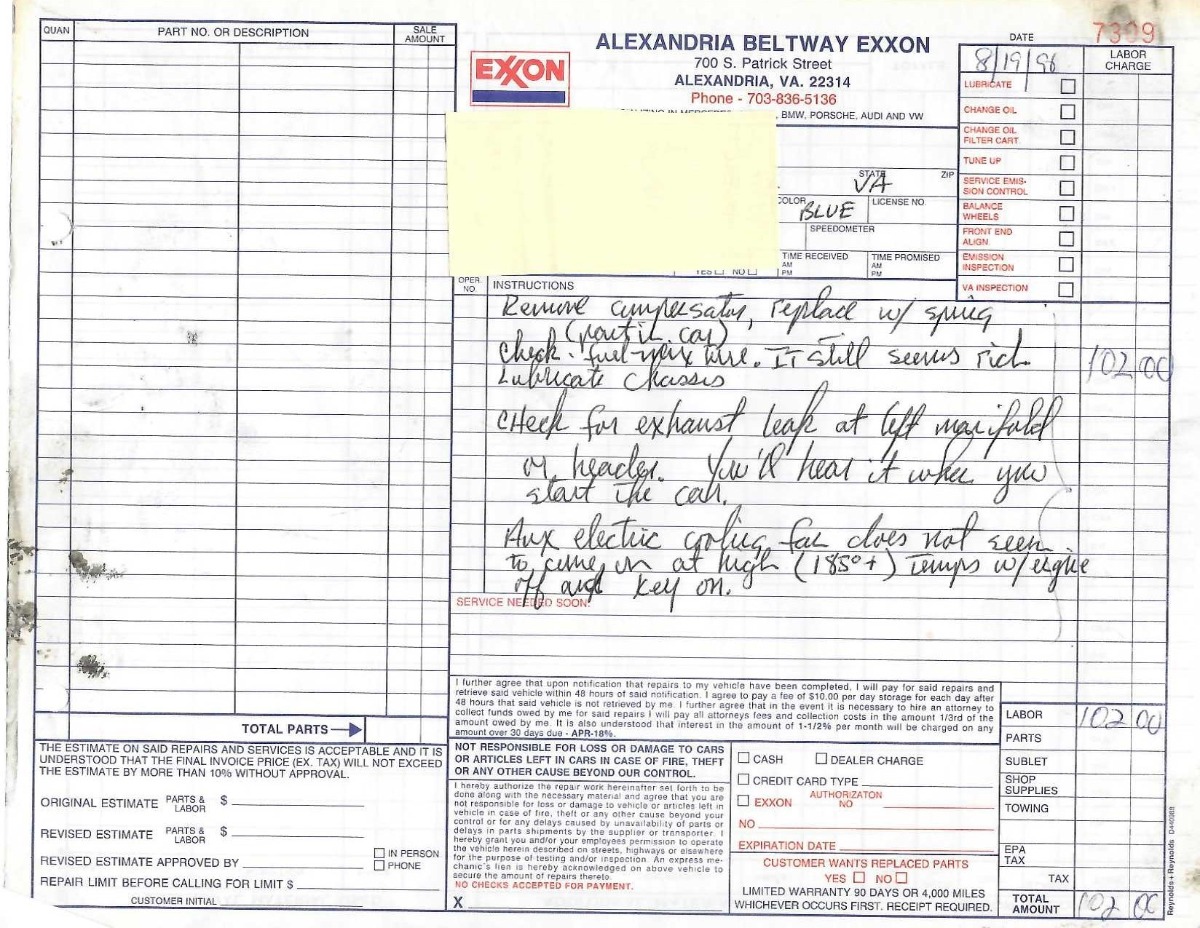 QUAN PART NO. OR DESCRIPTION SALE AMOUNT
TOTAL PARTS
THE ESTIMATE ON SAID REPAIRS AND SERVICES IS ACCEPTABLE AND IT IS
UNDERSTOOD THAT THE FINAL INVOICE PRICE (EX. TAX) WILL NOT EXCEED
THE ESTIMATE BY MORE THAN 10% WITHOUT APPROVAL.
ORIGINAL ESTIMATE PARTS & LABOR $
REVISED ESTIMATE PARTS & LABOR $
REVISED ESTIMATE APPROVED BY IN PERSON
PHONE
REPAIR LIMIT BEFORE CALLING FOR LIMIT $
CUSTOMER INITIAL
EXXON
ALEXANDRIA BELTWAY EXXON
700 S. Patrick Street
ALEXANDRIA, VA. 22314
Phone - 703-836-5136
, BMW, PORSCHE, AUDI AND VW
STATE ZIP
VA
COLOR BLUE LICENSE NO.
SPEEDOMETER
TIME RECEIVED AM PM TIME PROMISED AM PM
YES NO
OPER. NO. INSTRUCTIONS
Remove compensator, replace w/ spring
Check fuel-mixture. It still seems rich 102 00
Lubricate chassis
Check for exhaust leak at left manifold
or header. You'll hear it when you
start the car.
Aux electric cooling fan does not seem
to come on at high (185°+) Temps w/engine
off and key on.
SERVICE NEEDED SOON:
I further agree that upon notification that repairs to my vehicle have been completed, I will pay for said repairs and
retrieve said vehicle within 48 hours of said notification. I agree to pay a fee of $10.00 per day storage for each day after
48 hours that said vehicle is not retrieved by me. I further agree that in the event it is necessary to hire an attorney to
collect funds owed by me for said repairs I will pay all attorneys fees and collection costs in the amount 1/3rd of the
amount owed by me. It is also understood that interest in the amount of 1-1/2% per month will be charged on any
amount over 30 days due - APR-18%.
NOT RESPONSIBLE FOR LOSS OR DAMAGE TO CARS
OR ARTICLES LEFT IN CARS IN CASE OF FIRE, THEFT
OR ANY OTHER CAUSE BEYOND OUR CONTROL.
I hereby authorize the repair work hereinafter set forth to be
done along with the necessary material and agree that you are
not responsible for loss or damage to vehicle or articles left in
vehicle in case of fire, theft or any other cause beyond your
control or for any delays caused by unavailability of parts or
delays in parts shipments by the supplier or transporter. I
hereby grant you and/or your employees permission to operate
the vehicle herein described on streets, highways or elsewhere
for the purpose of testing and/or inspection. An express me-
chanic's lien is hereby acknowledged on above vehicle to
secure the amount of repairs thereto.
NO CHECKS ACCEPTED FOR PAYMENT.
X
CASH DEALER CHARGE
CREDIT CARD TYPE
EXXON AUTHORIZATON NO
NO
EXPIRATION DATE
CUSTOMER WANTS REPLACED PARTS
YES NO
LIMITED WARRANTY 90 DAYS OR 4,000 MILES
WHICHEVER OCCURS FIRST. RECEIPT REQUIRED.
7309
DATE
8/19/96
LABOR CHARGE
LUBRICATE
CHANGE OIL
CHANGE OIL
FILTER CART
TUNE UP
SERVICE EMIS-
SION CONTROL
BALANCE
WHEELS
FRONT END
ALIGN
EMISSION
INSPECTION
VA INSPECTION
LABOR 102 00
PARTS
SUBLET
SHOP SUPPLIES
TOWING
EPA TAX
TAX
TOTAL AMOUNT 102 00
Reynolds + Reynolds